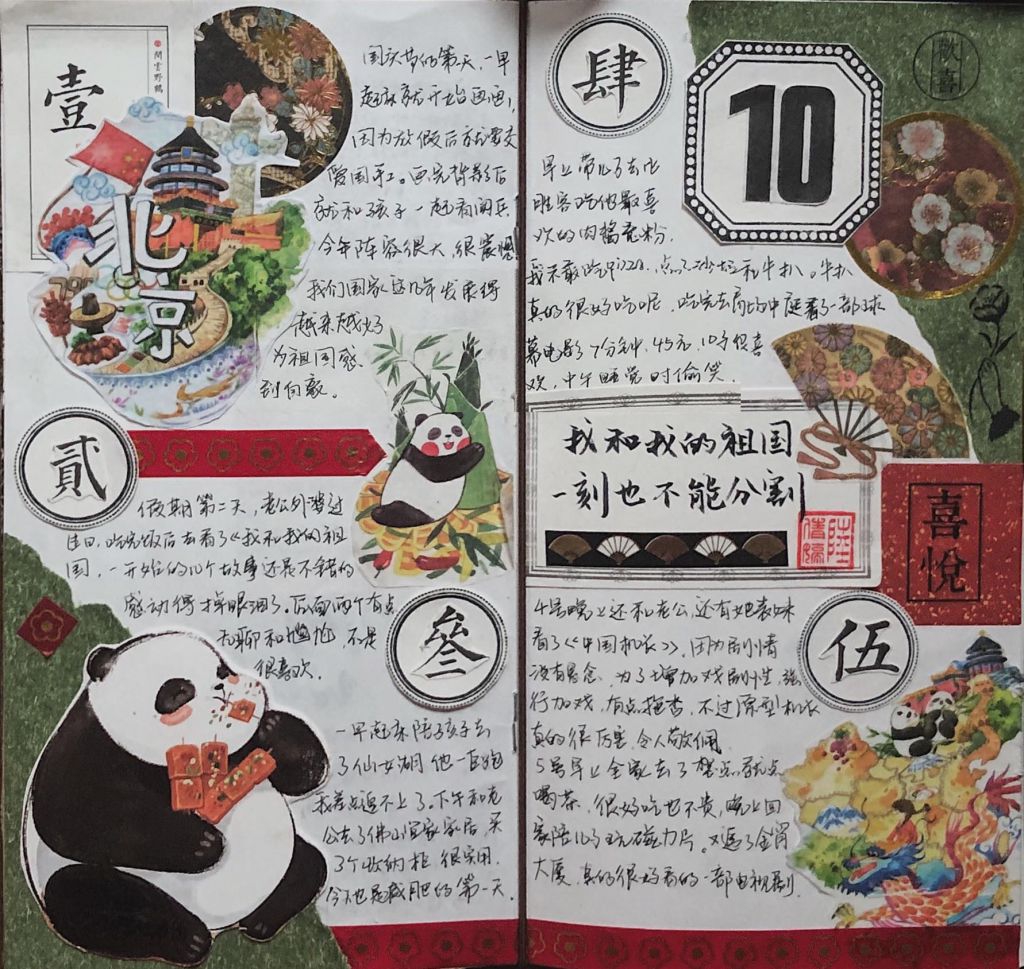 壹
閒雲野鶴
北京
国庆节的第一天,一早
起床就开始画画,
因为放假后就要交
爱国手工。画完背影后
就和孩子一起看阅兵
今年阵容很大,很震憾!
我们国家这几年发展得
越来越好
为祖国感
到自豪。
貳
假期第二天,老公外婆过
生日,吃完饭后去看了《我和我的祖
国》,一开始的几个故事还是不错的
感动得掉眼泪了。后面两个有点
无聊和尴尬,不是
很喜欢。
叁
一早起来陪孩子去
了仙女湖 他一直跑
我差点追不上了。下午和老
公去了佛山宜家家居,买
了个收纳柜 很实用
今天也是减肥的第一天。
肆
10
歡喜
早上带儿子去比
胜客吃他最喜
欢的肉酱意粉,
我不敢吃pizza,点了沙拉和牛扒。牛扒
真的很好吃呢,吃完去商场中庭看了一部球
幕电影了7分钟,45元,儿子很喜
欢,中午睡觉时偷笑。
我和我的祖国
一刻也不能分割
喜悅
伍
4号晚上还和老公,还有她表妹
看了《中国机长》,因为剧情
没有悬念,为了增加戏剧性,强
行加戏,有点拖沓,不过原型机长
真的很厉害,令人敬佩。
5号早上全家去了 点就点
喝茶,很好吃也不贵,晚上回
家陪儿子玩磁力片。又追了金宵
大厦,真的很好看的一部电视剧。